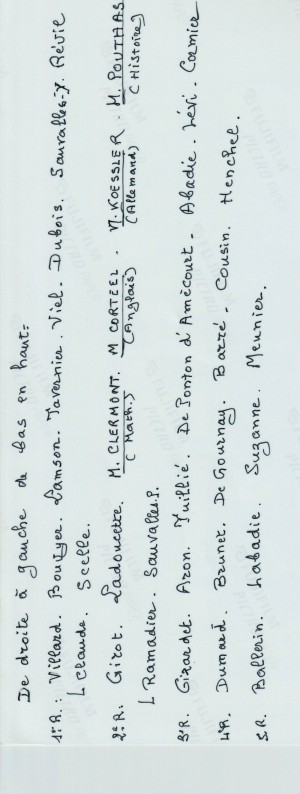 De droite à gauche de bas en haut=
1er R.: Villard. Bouyer. Lamson. Tavernier. Viel. Dubois. Sauvalles-J. Révie
Claude. Scelle.
2e R: Girot. Ladoucette. M. CLERMONT. M CORTEEL. M. KOESSLER. M. POUTHAS
(Math.) (Anglais) (Allemand) (Histoire)
Ramadier. Sauvalles.P.
3e R. Girardet. Aron. Tuillié. De Ponton d'Amécourt. Abadie. Lévi. Cormier
4e R. Dumard. Brunet. De Gournay. Barré. Cousin. Henchel.
5.R. Ballerin. Labadie. Suzanne. Meunier.